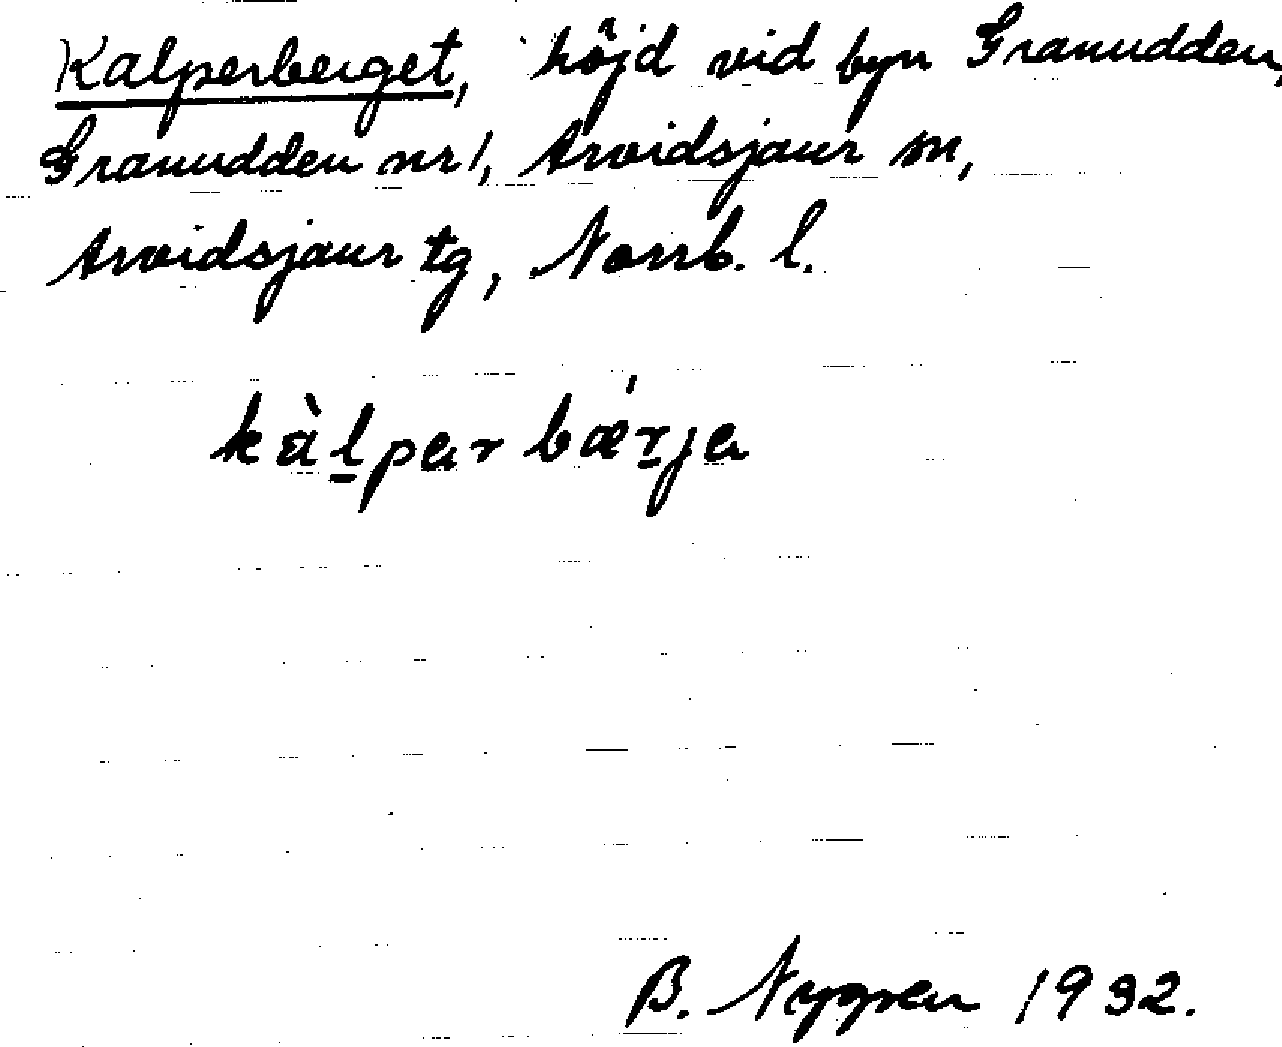 Kalperberget, höjd vid byn Granudden,
Granudden nr 1, Arvidsjaur sn,
Arvidsjaur tg, Norrb. l.
kàl̲par bæŕ̲ja
B. Nygren 1932.